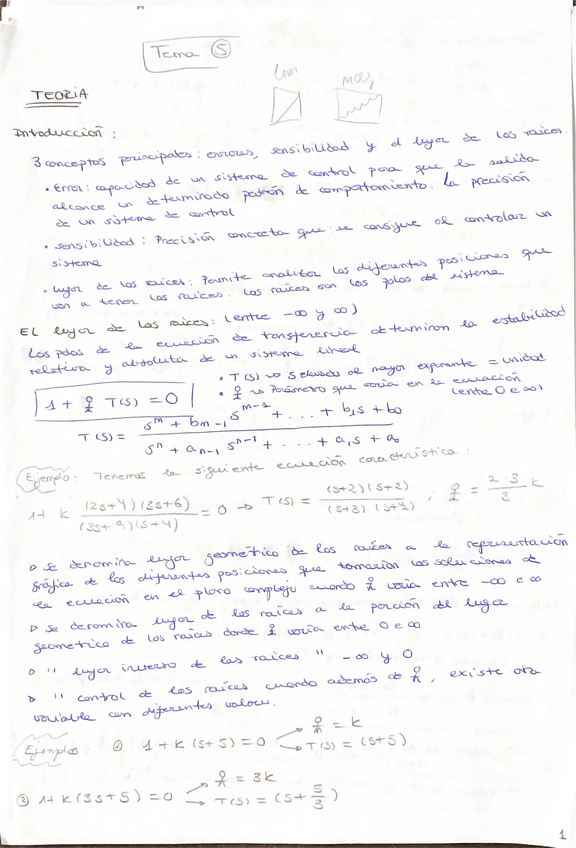 Tema ⑤
TEORIA
Introducción:
3 conceptos principales: errores, sensibilidad y el lugar de las raices.
• Error: capacidad de un sistema de control para que la salida
alcance un determinado patrón de comportamiento. La precisión
de un sistema de control
• sensibilidad: Precisión concreta que se consigue al controlar un
sistema
• lugar de las raices: Permite analizar las diferentes posiciones que
van a tener las raices. las raíces son los polos del sistema
EL lugar de las raices: (entre -∞ y ∞)
Los polos de la ecuación de transferencia determinan la estabilidad
relativa y absoluta de un sistema lineal
• T(s) → S elevado al mayor exponente = unidad
• k → Parámetro que varía en la ecuación
(entre 0 e ∞)
1 + k T(s) = 0
T(s) = s^m + b_{m-1} s^{m-1} + ... + b_1 s + b_0 / s^n + a_{n-1} s^{n-1} + ... + a_1 s + a_0
Ejemplo: Tenemos la siguiente ecuación característica:
1 + K (2s+4)(3s+6) / (3s+9)(s+4) = 0 → T(s) = (s+2)(s+2) / (s+3)(s+4), k = 2·3 / 3 K
▷ Se denomina lugar geométrico de las raíces a la representación
gráfica de los diferentes posiciones que tomarían las soluciones de
la ecuación en el plano complejo cuando k varia entre -∞ e ∞
▷ Se denomina lugar de las raíces a la porción del lugar
geometrico de las raices donde k varia entre 0 e ∞
▷ " lugar inverso de las raices " -∞ y 0
▷ " control de las raíces cuando además de k, existe otra
variable con diferentes valores.
Ejemplos: ① 1 + K (s+5) = 0 → k = K → T(s) = (s+5)
② 1 + K (3s+5) = 0 → k = 3K → T(s) = (s + 5/3)
1